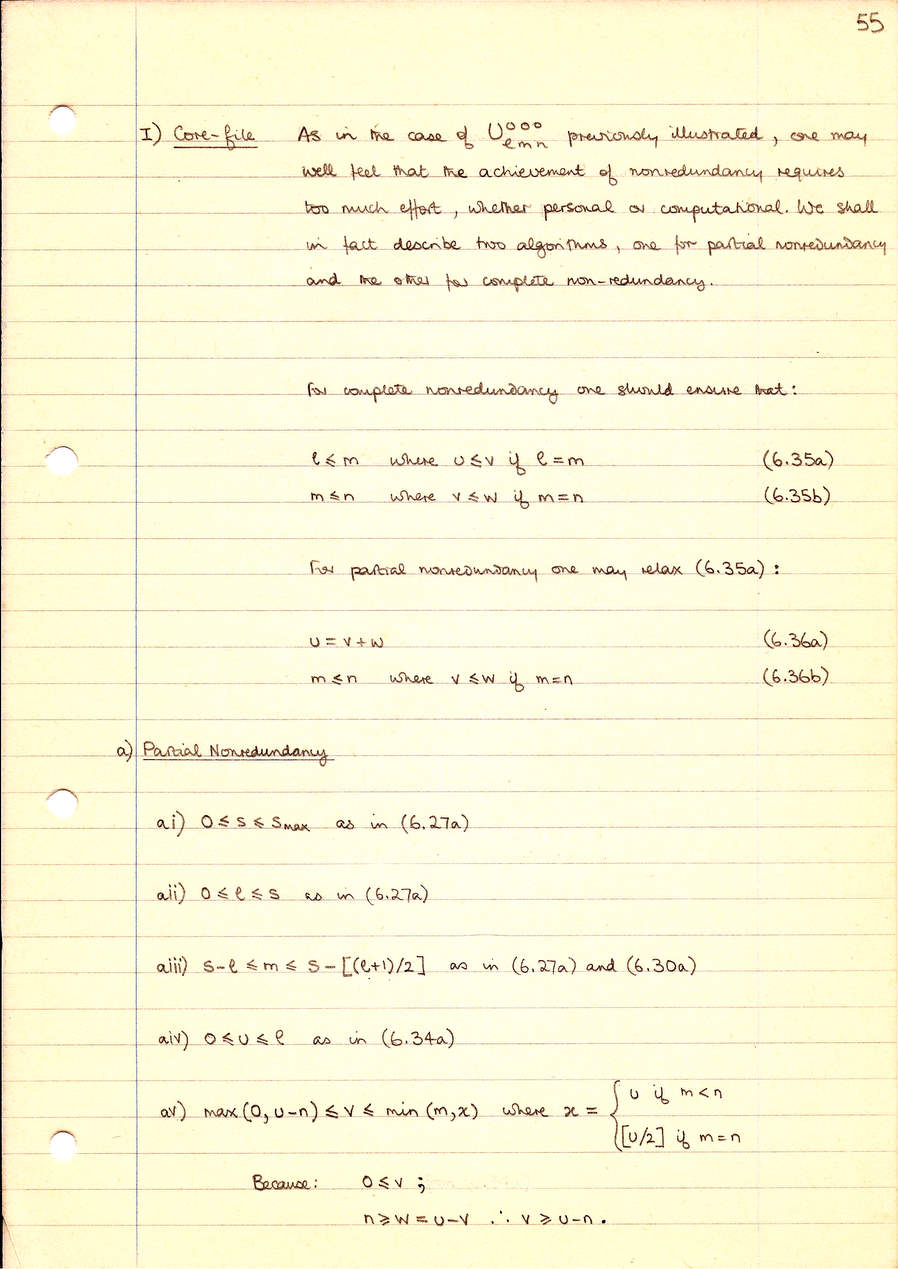 55
I) Core-file As in the case of U⁰⁰⁰ℓmn previously illustrated, one may
well feel that the achievement of nonredundancy requires
too much effort, whether personal or computational. We shall
in fact describe two algorithms, one for partial nonredundancy
and the other for complete non-redundancy.
For complete nonredundancy one should ensure that:
ℓ ≤ m where u ≤ v if ℓ = m (6.35a)
m ≤ n where v ≤ w if m = n (6.35b)
For partial nonredundancy one may relax (6.35a) :
u = v + w (6.36a)
m ≤ n where v ≤ w if m = n (6.36b)
a) Partial Nonredundancy
ai) 0 ≤ s ≤ smax as in (6.27a)
aii) 0 ≤ ℓ ≤ s as in (6.27a)
aiii) s-ℓ ≤ m ≤ s - [(ℓ+1)/2] as in (6.27a) and (6.30a)
aiv) 0 ≤ u ≤ ℓ as in (6.34a)
av) max(0, u-n) ≤ v ≤ min(m, x) where x = { u if m < n
[u/2] if m = n
Because: 0 ≤ v ;
n ≥ w = u-v ∴ v ≥ u-n.